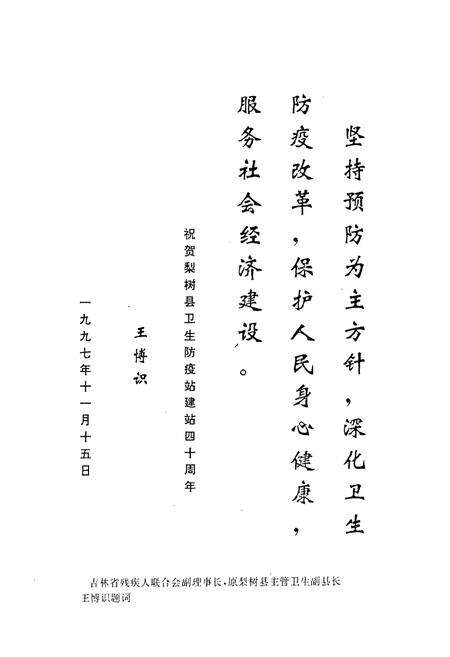 坚持预防为主方针，深化卫生
防疫改革，保护人民身心健康，
服务社会经济建设。
祝贺梨树县卫生防疫站建站四十周年
王博识
一九九七年十一月十五日
吉林省残疾人联合会副理事长，原梨树县主管卫生副县长
王博识题词